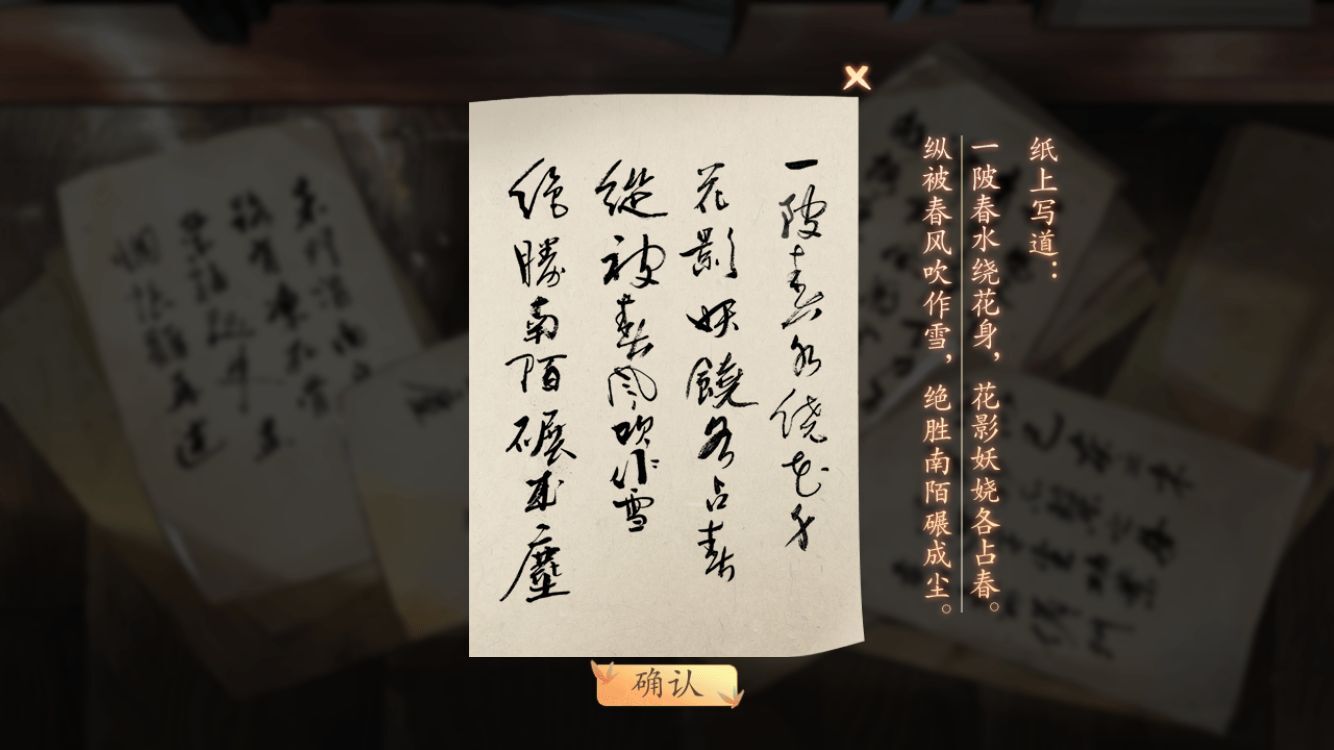 纸上写道：
一陂春水绕花身，花影妖娆各占春。
纵被春风吹作雪，绝胜南陌碾成尘。
一陂春水绕花身
花影妖饒各占春
縱被春風吹作雪
絶勝南陌碾成塵
确认